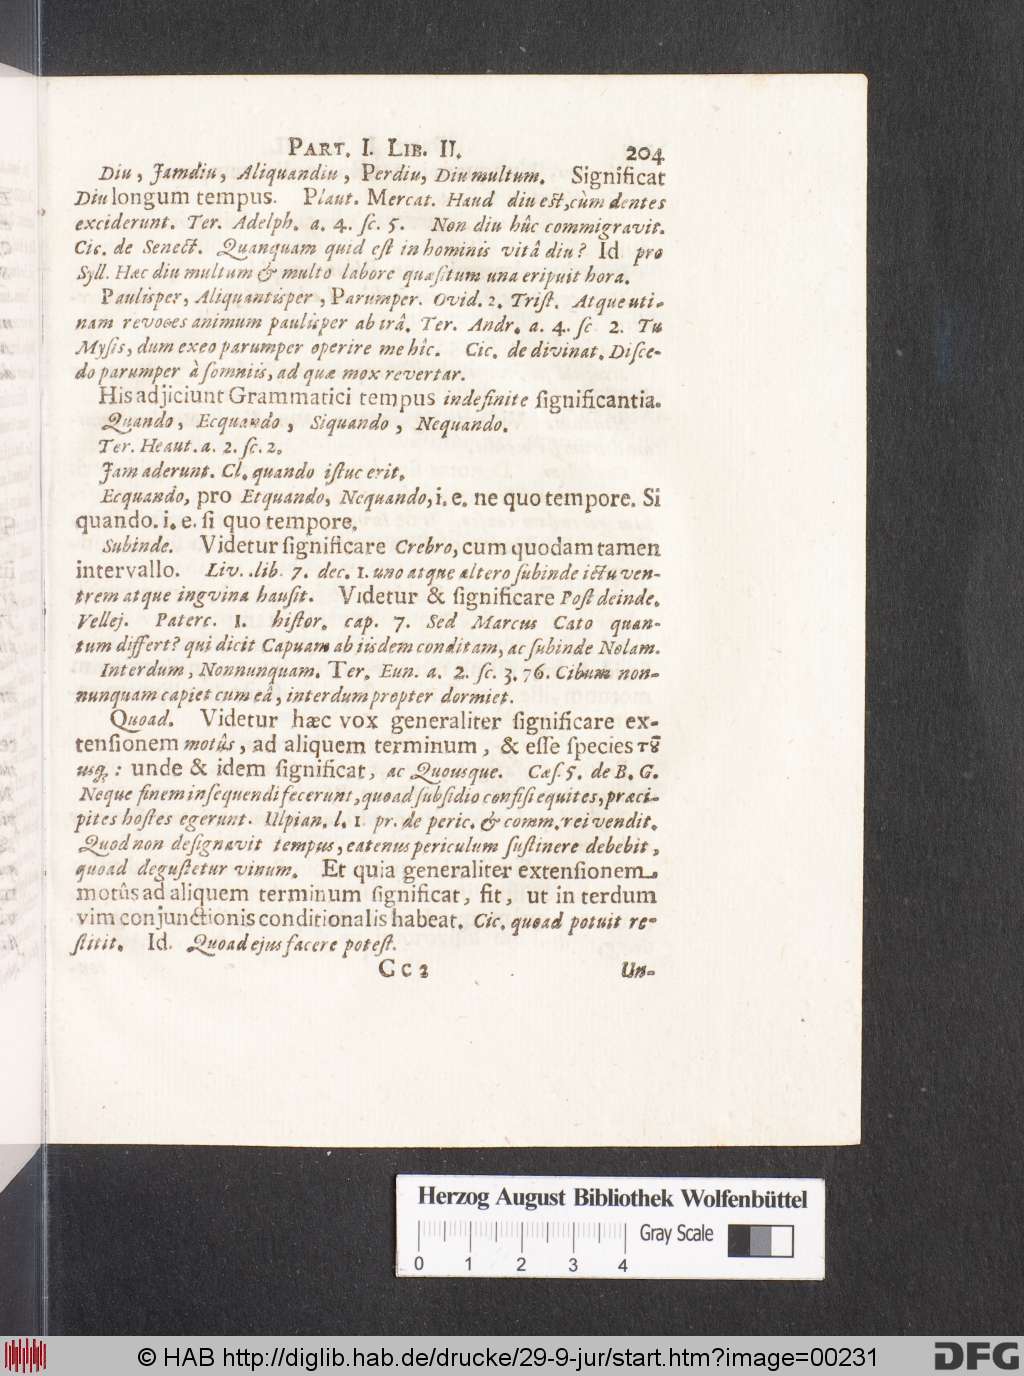 PART. I. LIB. II. 204
Diu, Jamdiu, Aliquandiu, Perdiu, Diu multum. Significat
Diu longum tempus. Plaut. Mercat. Haud diu est, cùm dentes
exciderunt. Ter. Adelph. a. 4. sc. 5. Non diu hûc commigravit.
Cic. de Senect. Quanquam quid est in hominis vitâ diu? Id pro
Syll. Hæc diu multum & multo labore quæsitum una eripuit hora.
Paulisper, Aliquantisper, Parumper. Ovid. 2. Trist. Atque uti-
nam revoces animum paulisper ab irâ. Ter. Andr. a. 4. sc 2. Tu
Mysis, dum exeo parumper operire me hîc. Cic. de divinat. Disce-
do parumper à somniis, ad quæ mox revertar.
His adjiciunt Grammatici tempus indefinite significantia.
Quando, Ecquando, Siquando, Nequando.
Ter. Heaut. a. 2. sc. 2.
Jam aderunt. Cl. quando istuc erit.
Ecquando, pro Etquando, Nequando, i. e. ne quo tempore. Si
quando. i. e. si quo tempore.
Subinde. Videtur significare Crebro, cum quodam tamen
intervallo. Liv. lib. 7. dec. 1. uno atque altero subinde ictu ven-
trem atque ingvina hausit. Videtur & significare Post deinde.
Vellej. Paterc. 1. histor. cap. 7. Sed Marcus Cato quan-
tum differt? qui dicit Capuam ab iisdem conditam, ac subinde Nolam.
Interdum, Nonnunquam. Ter. Eun. a. 2. sc. 3. 76. Cibum non-
nunquam capiet cum eâ, interdum propter dormiet.
Quoad. Videtur hæc vox generaliter significare ex-
tensionem motûs, ad aliquem terminum, & esse species τȣ͂
usq;: unde & idem significat, ac Quousque. Cæs. 5. de B. G.
Neque finem insequendi fecerunt, quoad subsidio confisi equites, præci-
pites hostes egerunt. Ulpian. l. 1 pr. de peric. & comm. rei vendit.
Quod non designavit tempus, eatenus periculum sustinere debebit,
quoad degustetur vinum. Et quia generaliter extensionem
motûs ad aliquem terminum significat, fit, ut in terdum
vim conjunctionis conditionalis habeat. Cic. quoad potuit re-
stitit. Id. Quoad ejus facere potest.
Cc 2 Un-
Herzog August Bibliothek Wolfenbüttel
Gray Scale
0 1 2 3 4
© HAB http://diglib.hab.de/drucke/29-9-jur/start.htm?image=00231
DFG